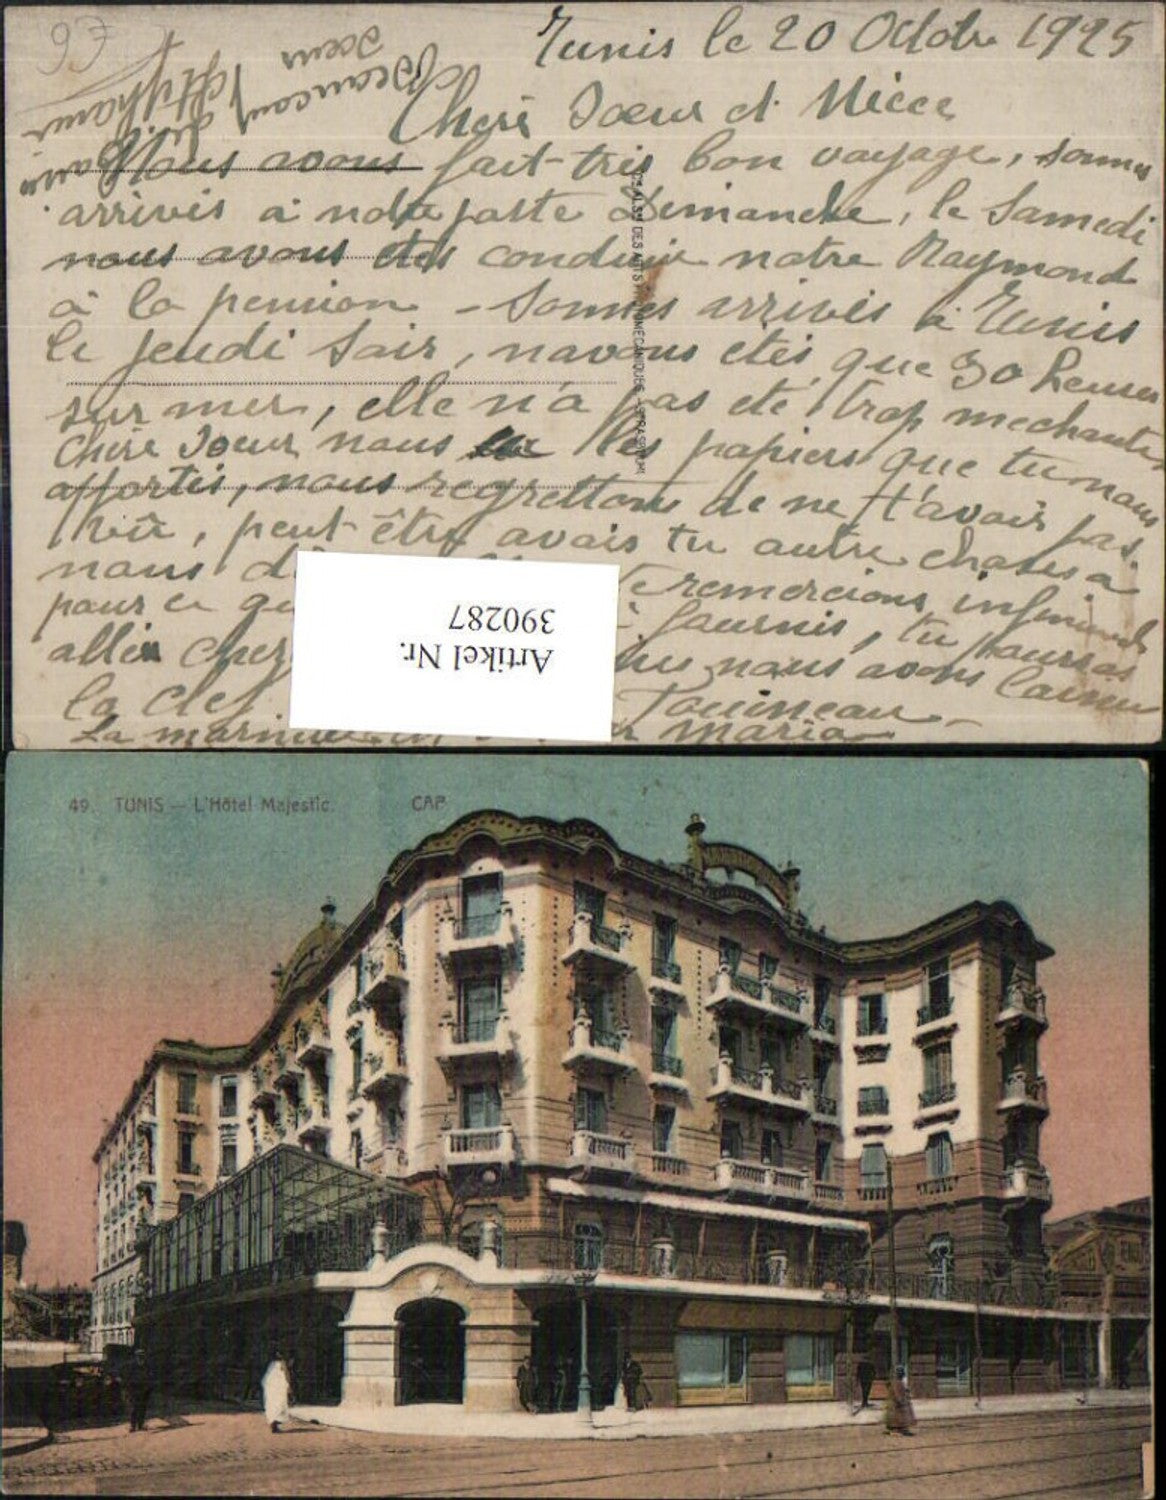 Tunis le 20 Octobre 1925
Chère Soeur et Nièce
Nous avons fait très bon voyage, sommes
arrivés à notre poste Dimanche, le Samedi
nous avons étés conduire notre Raymond
à la pension - Sommes arrivés à Tunis
le jeudi Soir, navons étés que 30 heures
sur mer, elle n'a pas été trop mechante
Chère Soeur nous les papiers que tu nous
apportés, nous regrettons de ne t'avoir pas
peut être avais tu autre choses a
nous te remercions infiniment
pour ce fournis, tu pourras
aller chez nous avons laissé
la clef Touineau -
La Maria
soeur
Beaucoup de
96
Artikel Nr.
390287
49. TUNIS — L'Hôtel Majestic. CAP